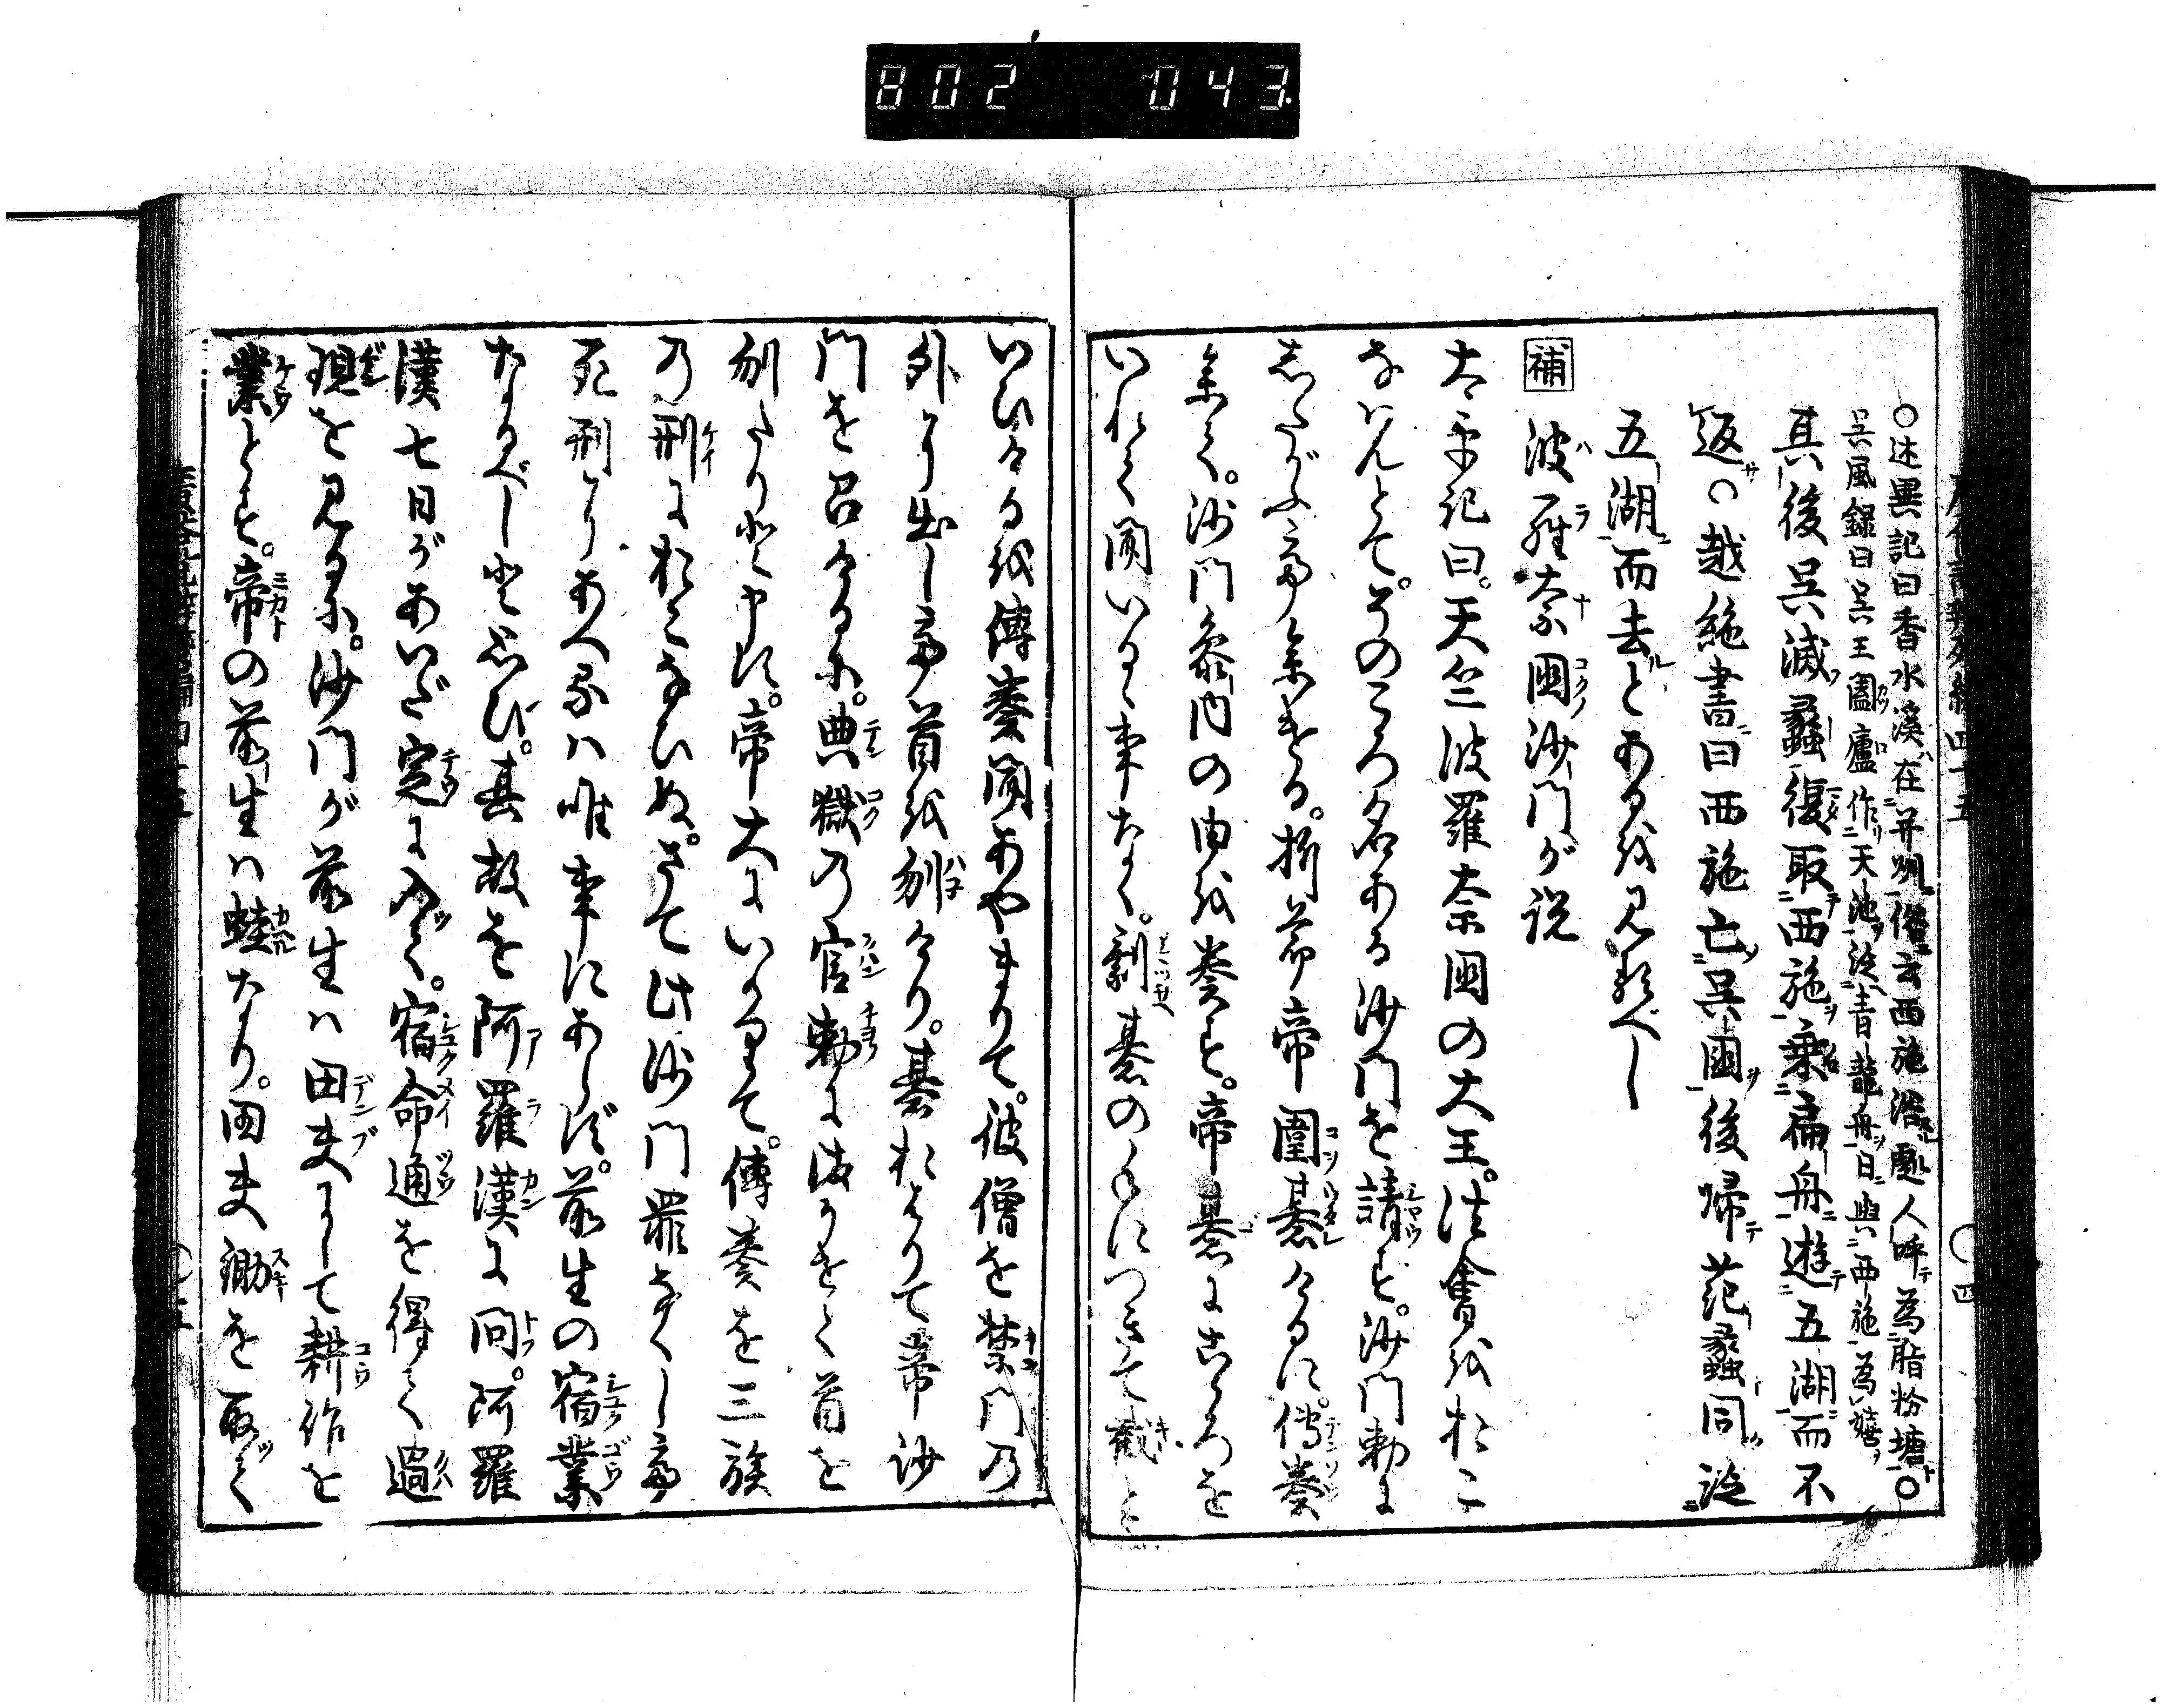 802 043
〇述異記曰香水溪在并州俗云西施浴處人呼為脂粉塘〇
呉風録曰呉王闔廬作天池泛青龍舟日與西施為嬉
其後呉滅蠡復取西施乗扁舟遊五湖而不
返〇越絶書曰西施亡呉國後帰范蠡同泛
五湖而去とあるを見るべし
補 波羅奈国沙門が説
太平記曰。天竺波羅奈国の大王。法會をおこ
なはんとて。そのころ名ある沙門を請ず。沙門勅に
したがふて参ずる。折節帝圍碁けるに。傳奏
参て。沙門参内の由を奏す。帝碁にこゝろを
いれて聞いるゝ事なく。剰碁の手につきて截と
いひけるを傳奏聞あやまりて。彼僧を禁門乃
外より出して首を刎けり。碁おはりて帝沙
門を召けるに。典獄乃官勅に依りてとく首を
刎たりと申に。帝大にいかりて。傳奏を三族
乃刑におこなひぬ。さて此沙門罪なくして
死刑にあへるハ唯事にあらず。前生の宿業
なるべしと思ひ。其故を阿羅漢に問。阿羅
漢七日があいだ定に入て。宿命通を得て過
現を見るに。沙門が前生ハ田夫にして耕作を
業とす。帝の前生ハ蛙なり。田夫鋤を取て